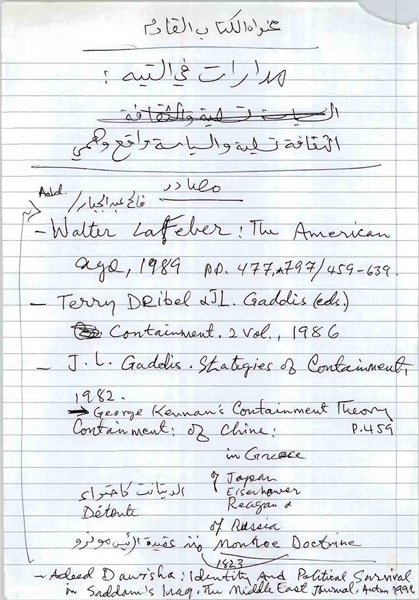 عنوان الكتاب القادم
مدارات في التيه :
السياسة تسلية والثقافة
الثقافة تسلية والسياسة واقع وهمي
مصادر
Add. فالح عبد الجبار/
- Walter LaFeber: The American
age, 1989 pp. 477, 797/459-639.
- Terry Deibel & J.L. Gaddis (eds.)
Containment. 2 vol., 1986
- J. L. Gaddis. Strategies of Containment,
1982.
→ George Kennan's Containment Theory
Containment: of China: P.459
in Greece
of Japan
الديتانت كاحتواء Eisenhower
Détente Reagan &
of Russia
منذ عقيدة الرئيس مونرو Monroe Doctrine
1823
- Adeed Dawisha: Identity And Political Survival
in Saddam's Iraq, The Middle East Journal, Autmn 1999